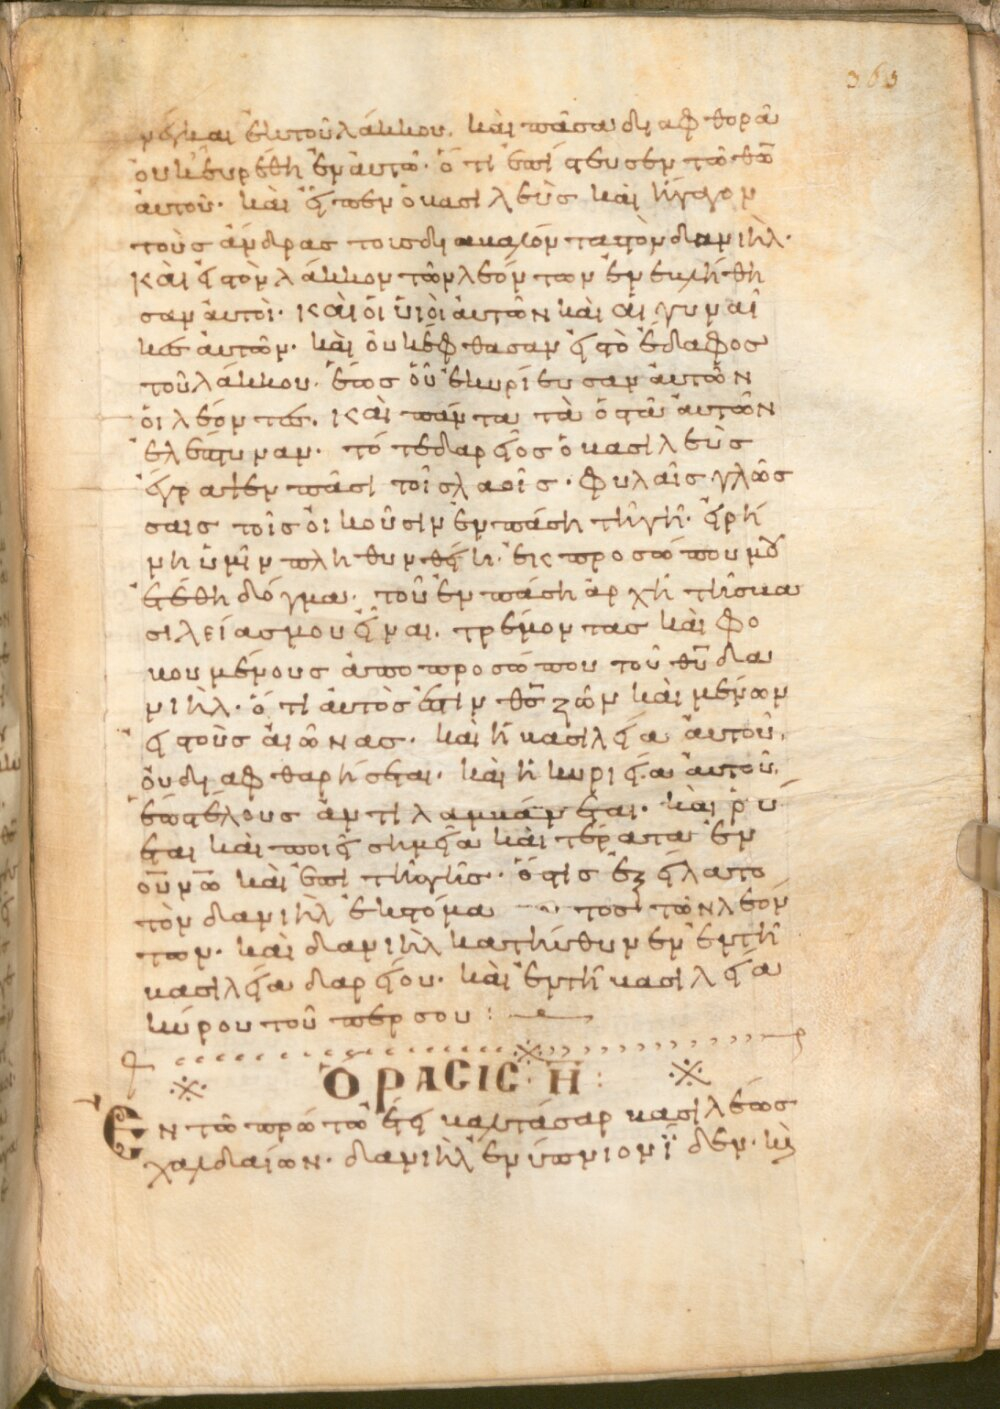 363
νέγκαι ἐκ τοῦ λάκκου. καὶ πᾶσα διαφθορὰ
οὐκ εὑρέθη ἐν αὐτῶ· ὅτι ἐπίστευσεν τῶ θῶ
αὐτοῦ· καὶ εἶπεν ὁ βασιλεὺς καὶ ἤγαγον
τοὺς ἄνδρας τοὺς διαβαλόντας τὸν δανιὴλ·
καὶ εἰς τὸν λάκκον τῶν λεόντων ἐνεβλήθη
σαν αὐτοὶ· καὶ οἱ ὑιοὶ αὐτῶν καὶ αἱ γυναῖ
κες αὐτῶν· καὶ οὐκ ἔφθασαν εἰς τὸ ἔδαφος
τοῦ λάκκου· ἕως οὗ ἐκυρίευσαν αὐτῶν
οἱ λέοντες. καὶ πάντα τὰ ὀστᾶ αὐτῶν
ἐλέπτυναν· τότε δαρεῖος ὁ βασιλεὺς
ἔγραψεν πᾶσι τοῖς λαοῖς· φυλαῖς γλώσ
σαις τοῖς οἰκοῦσιν ἐν πάση τῆ γῆ· εἰρή
νη ὑμῖν πληθυνθείη· ἐκ προσώπου μου
ἐτέθη δόγμα· τοῦ ἐν πάση ἀρχῆ τῆς βα
σιλείας μου εἶναι. τρέμοντας καὶ φο
βουμένους ἀπὸ προσώπου τοῦ θῦ δα
νιὴλ· ὅτι αὐτός ἐστιν θς ζῶν καὶ μένων
εἰς τοὺς αἰῶνας· καὶ ἡ βασιλεία αὐτοῦ.
οὐ διαφθαρήσεται· καὶ ἡ κυριεία αὐτοῦ.
ἕως τέλους ἀντιλαμβάνεται· καὶ ῥύ
εται καὶ ποιεῖ σημεῖα καὶ τέρατα ἐν
οὐνῶ καὶ ἐπὶ τῆς γῆς· ὅστις ἐξείλατο
τὸν δανιὴλ ἐκ στόματος τῶν λεόν
των· καὶ δανιὴλ κατηύθυνεν ἐν τῆ
βασιλεία δαρείου· καὶ ἐν τῆ βασιλεία
κύρου τοῦ πέρσου :
ὍΡΑCΙC Η :
Ἐν τῶ πρώτω ἔτει βαλτάσαρ βασιλέως
χαλδαίων· δανιὴλ ἐνύπνιον ἴδεν· κὶ